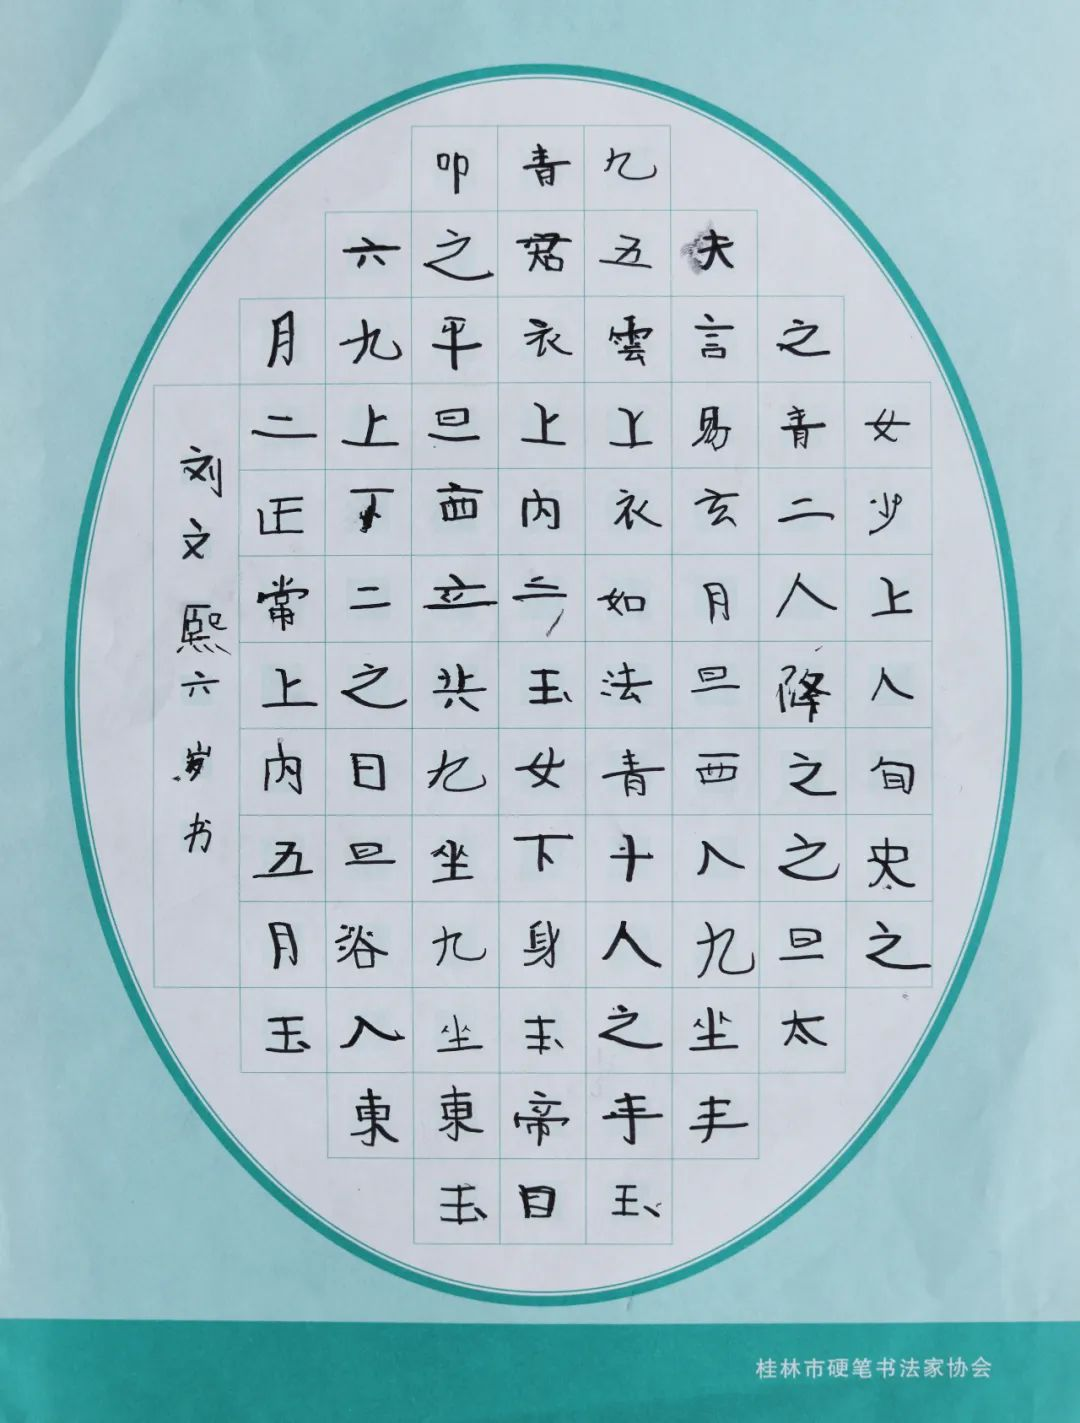 女少上人旬史之
之青二人降之之旦太
夫言易玄月旦西入九坐丰
九五雲上衣如法青十人之手玉
青君衣上内二玉女下身玉帝目
叩之平旦西立共九坐九坐東玉
六九上下二之日旦浴入東
月二正常上内五月玉
刘文熙六岁书
桂林市硬笔书法家协会